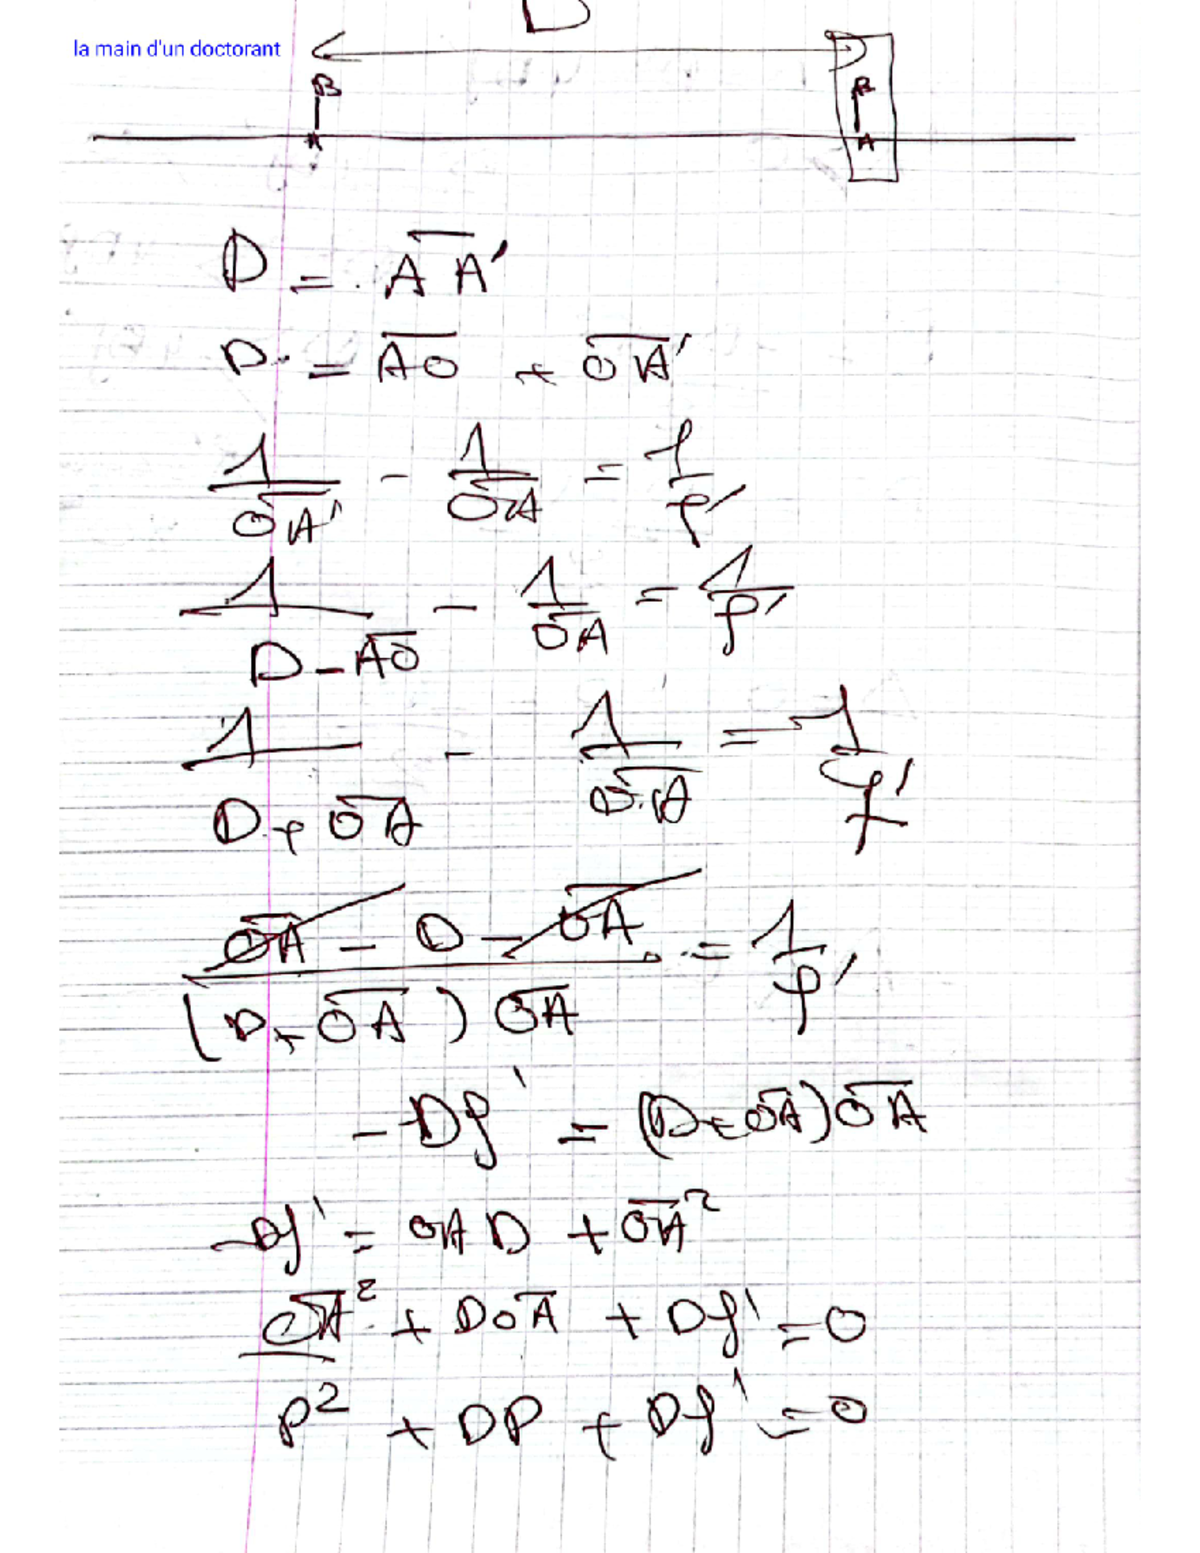 D
la main d'un doctorant
B B
A A
D = AA'
D = AO + OA'
1/OA' - 1/OA = 1/f'
1/(D - AO) - 1/OA = 1/f'
1/(D + OA) - 1/OA = 1/f'
(OA - D - OA)/((D + OA) OA) = 1/f'
- Df' = (D + OA) OA
- Df' = OA D + OA²
OA² + D OA + Df' = 0
P² + DP + Df' = 0